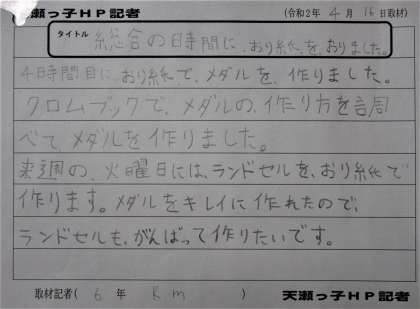 天瀬っ子HP記者 (令和2年 4月 16日取材)
タイトル 総合の時間に、おり紙をおりました。
4時間目に、おり紙で、メダルを、作りました。
クロムブックで、メダルの、作り方を調
べて、メダルを作りました。
来週の、火曜日には、ランドセルを、おり紙で
作ります。メダルをキレイに作れたので、
ランドセルも、がんばって作りたいです。
取材記者( 6 年 Rm ) 天瀬っ子HP記者